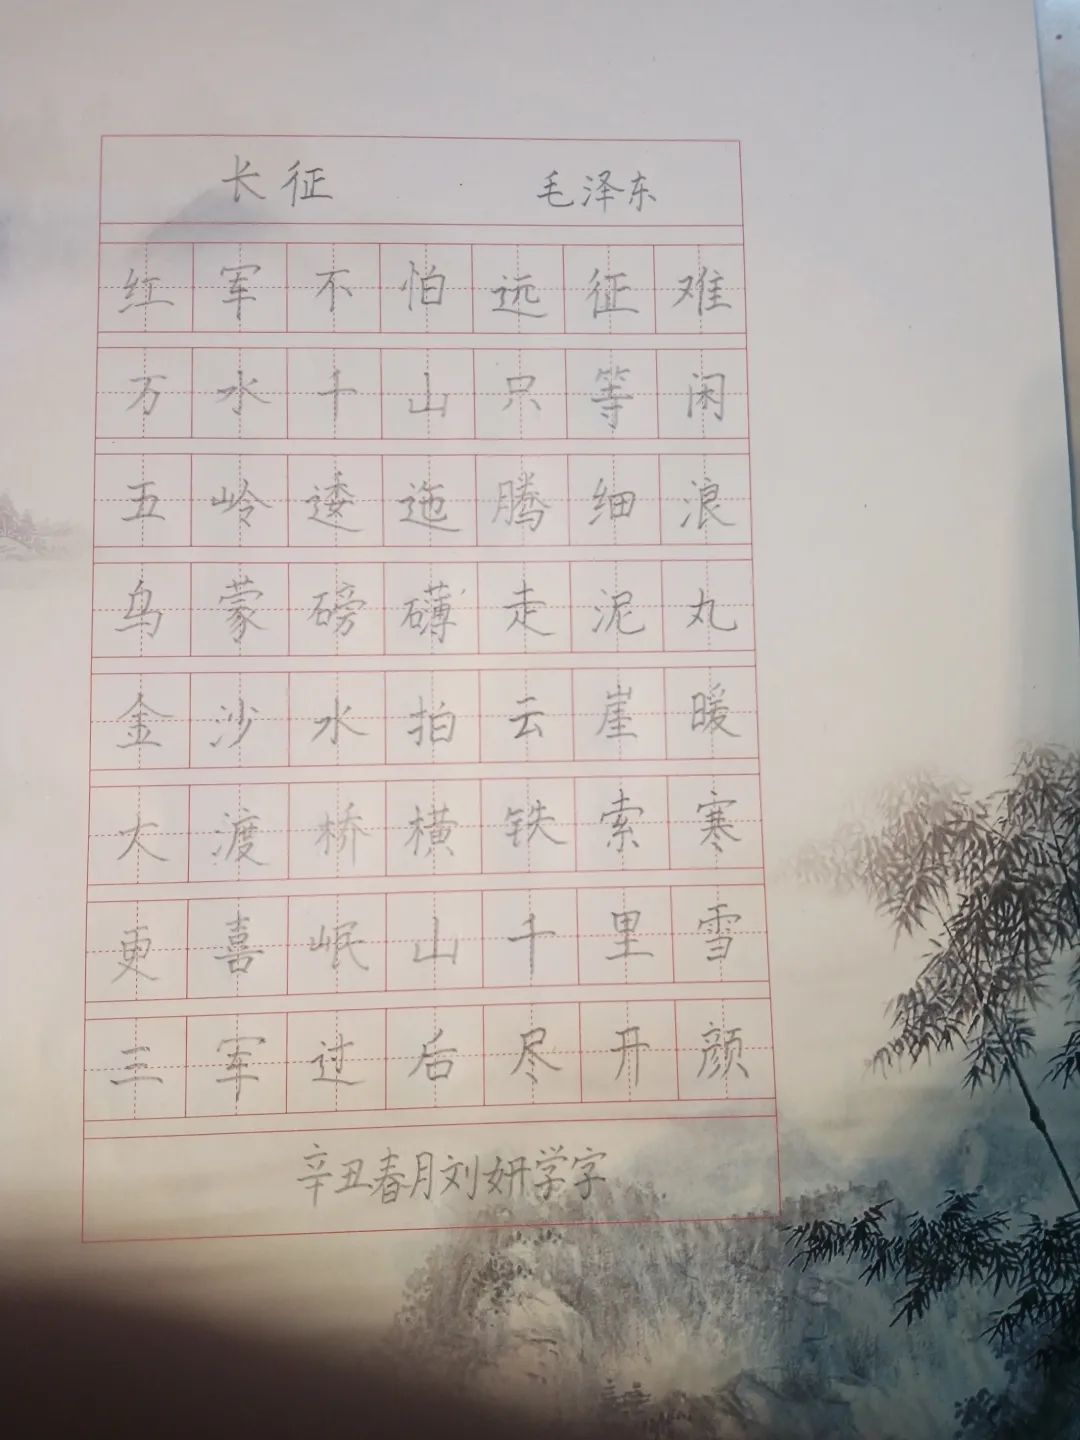 长征 毛泽东
红军不怕远征难
万水千山只等闲
五岭逶迤腾细浪
乌蒙磅礴走泥丸
金沙水拍云崖暖
大渡桥横铁索寒
更喜岷山千里雪
三军过后尽开颜
辛丑春月刘妍学字